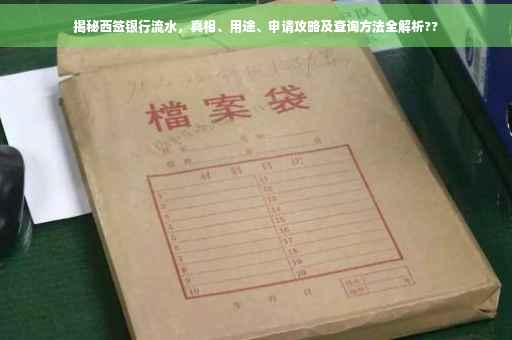 揭秘西签银行流水，真相、用途、申请攻略及查询方法全解析??
檔案袋
材料目次
1 11
2 12
3 13
4 14
5 15
6 16
7 17
8 18
9 19
10 20
年 月 日